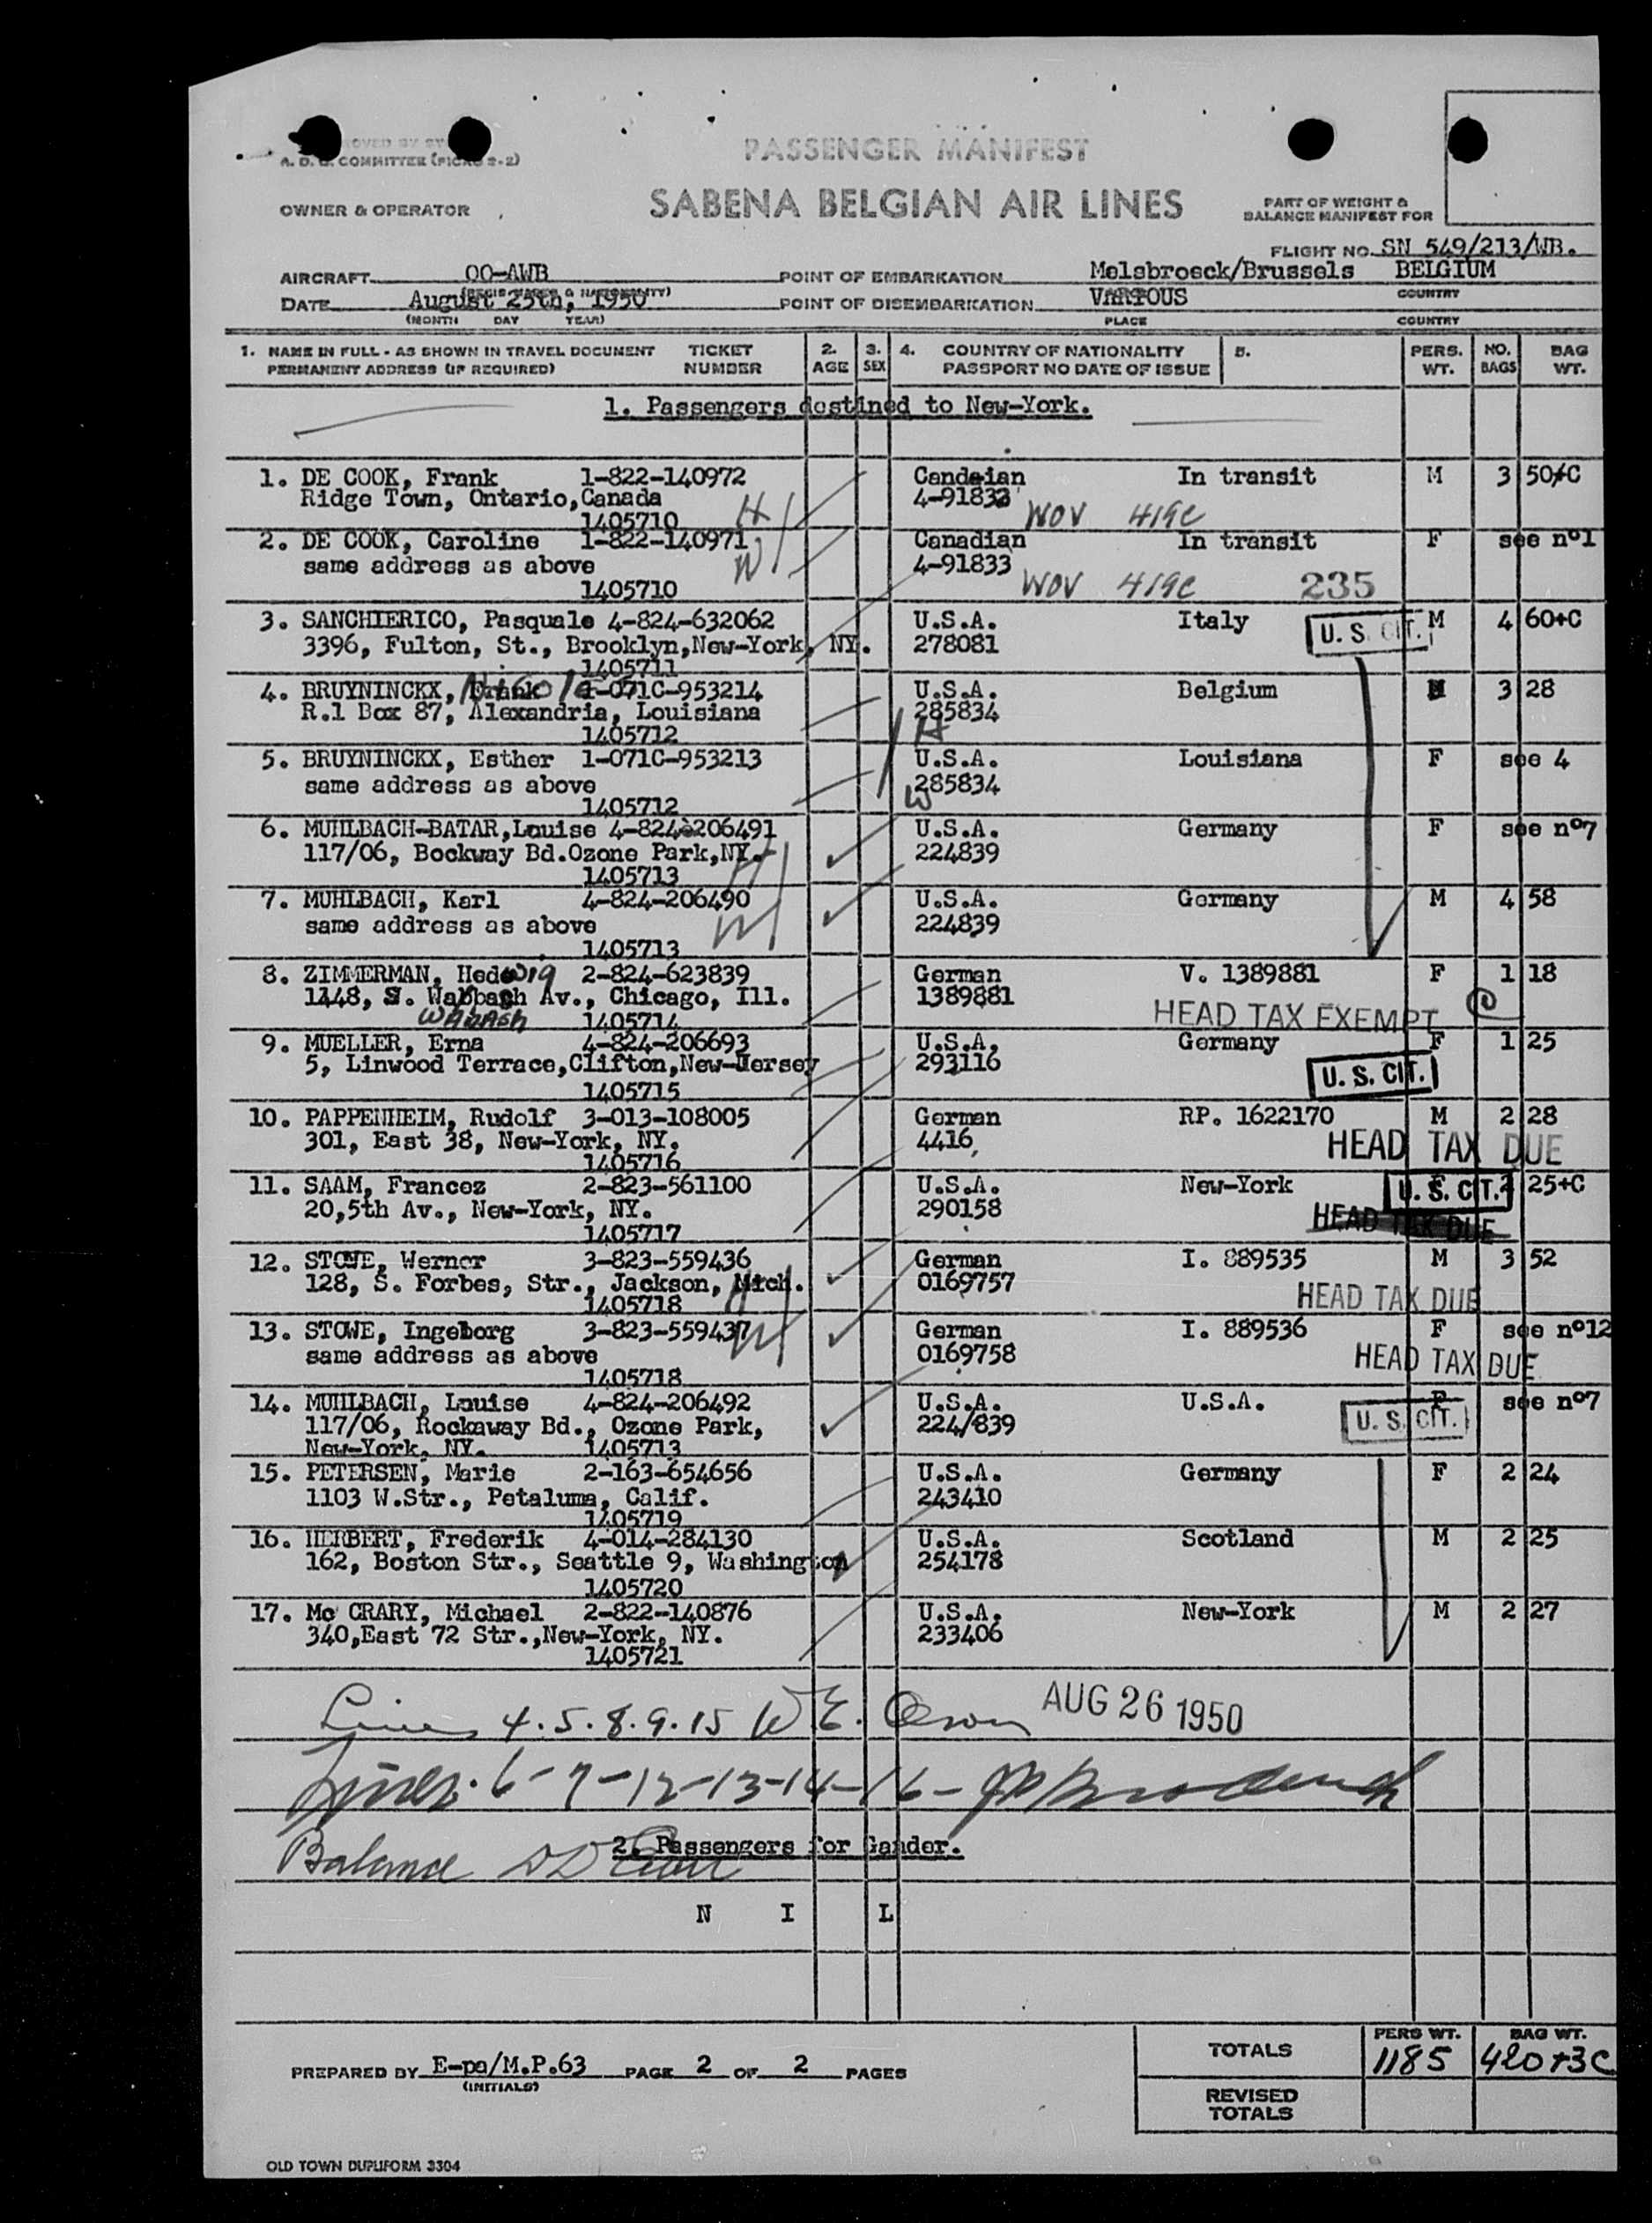 A. D. COMMITTEE (FICAO S-2)
PASSENGER MANIFEST
SABENA BELGIAN AIR LINES
OWNER & OPERATOR
PART OF WEIGHT &
BALANCE MANIFEST FOR
FLIGHT NO. SN 549/213/WB.
AIRCRAFT OO-AWB POINT OF EMBARKATION Melsbroeck/Brussels BELGIUM
(REGIS MARKS & NATIONALITY) COUNTRY
DATE August 25th, 1950 POINT OF DISEMBARKATION VARIOUS
(MONTH DAY YEAR) PLACE COUNTRY
1. NAME IN FULL - AS SHOWN IN TRAVEL DOCUMENT TICKET 2. 3. 4. COUNTRY OF NATIONALITY 5. PERS. NO. BAG
PERMANENT ADDRESS (IF REQUIRED) NUMBER AGE SEX PASSPORT NO DATE OF ISSUE WT. BAGS WT.
1. Passengers destined to New-York.
1. DE COOK, Frank 1-822-140972 Candaian In transit M 3 50+C
Ridge Town, Ontario, Canada 4-91833
1405710 H WOV 419C
2. DE COOK, Caroline 1-822-140971 Canadian In transit F see nº1
same address as above W 4-91833
1405710 WOV 419C 235
3. SANCHIERICO, Pasquale 4-824-632062 U.S.A. Italy U. S. CIT. M 4 60+C
3396, Fulton, St., Brooklyn,New-York, NY. 278081
1405711
4. BRUYNINCKX, Frank 1-071C-953214 U.S.A. Belgium M 3 28
R.1 Box 87, Alexandria, Louisiana 285834
1405712 H
5. BRUYNINCKX, Esther 1-071C-953213 U.S.A. Louisiana F see 4
same address as above 285834
1405712 W
6. MUHLBACH-BATAR,Louise 4-824-206491 U.S.A. Germany F see nº7
117/06, Bockway Bd.Ozone Park,NY. 224839
1405713 H
7. MUHLBACH, Karl 4-824-206490 U.S.A. Germany M 4 58
same address as above W 224839
1405713
8. ZIMMERMAN, Hedwig 2-824-623839 German V. 1389881 F 1 18
1148, S. Wabbach Av., Chicago, Ill. 1389881
WABASH 1405714 HEAD TAX EXEMPT
9. MUELLER, Erna 4-824-206693 U.S.A. Germany F 1 25
5, Linwood Terrace,Clifton,New-Jersey 293116 U. S. CIT.
1405715
10. PAPPENHEIM, Rudolf 3-013-108005 German RP. 1622170 M 2 28
301, East 38, New-York, NY. 4416 HEAD TAX DUE
1405716
11. SAAM, Francez 2-823-561100 U.S.A. New-York U. S. CIT. 2 25+C
20,5th Av., New-York, NY. 290158 HEAD TAX DUE
1405717
12. STOWE, Werner 3-823-559436 German I. 889535 M 3 52
128, S. Forbes, Str., Jackson, Mich. 0169757 HEAD TAX DUE
1405718 H
13. STOWE, Ingeborg 3-823-559437 German I. 889536 F see nº12
same address as above W 0169758 HEAD TAX DUE
1405718
14. MUHLBACH, Louise 4-824-206492 U.S.A. U.S.A. F see nº7
117/06, Rockaway Bd., Ozone Park, 224/839 U. S. CIT.
New-York, NY. 1405713
15. PETERSEN, Marie 2-163-654656 U.S.A. Germany F 2 24
1103 W.Str., Petaluma, Calif. 243410
1405719
16. HERBERT, Frederik 4-014-284130 U.S.A. Scotland M 2 25
162, Boston Str., Seattle 9, Washington 254178
1405720
17. Mc CRARY, Michael 2-822-140876 U.S.A. New-York M 2 27
340,East 72 Str.,New-York, NY. 233406
1405721
Lines 4.5.8.9.15 W E. AUG 26 1950
Lines. 6-7-12-13-14-16-
Balance
2. Passengers for Gander.
N I L
TOTALS PERS WT. 1185 BAG WT. 420+3C
PREPARED BY E-pa/M.P.63 PAGE 2 OF 2 PAGES
(INITIALS)
REVISED
TOTALS
OLD TOWN DUPLIFORM 3304